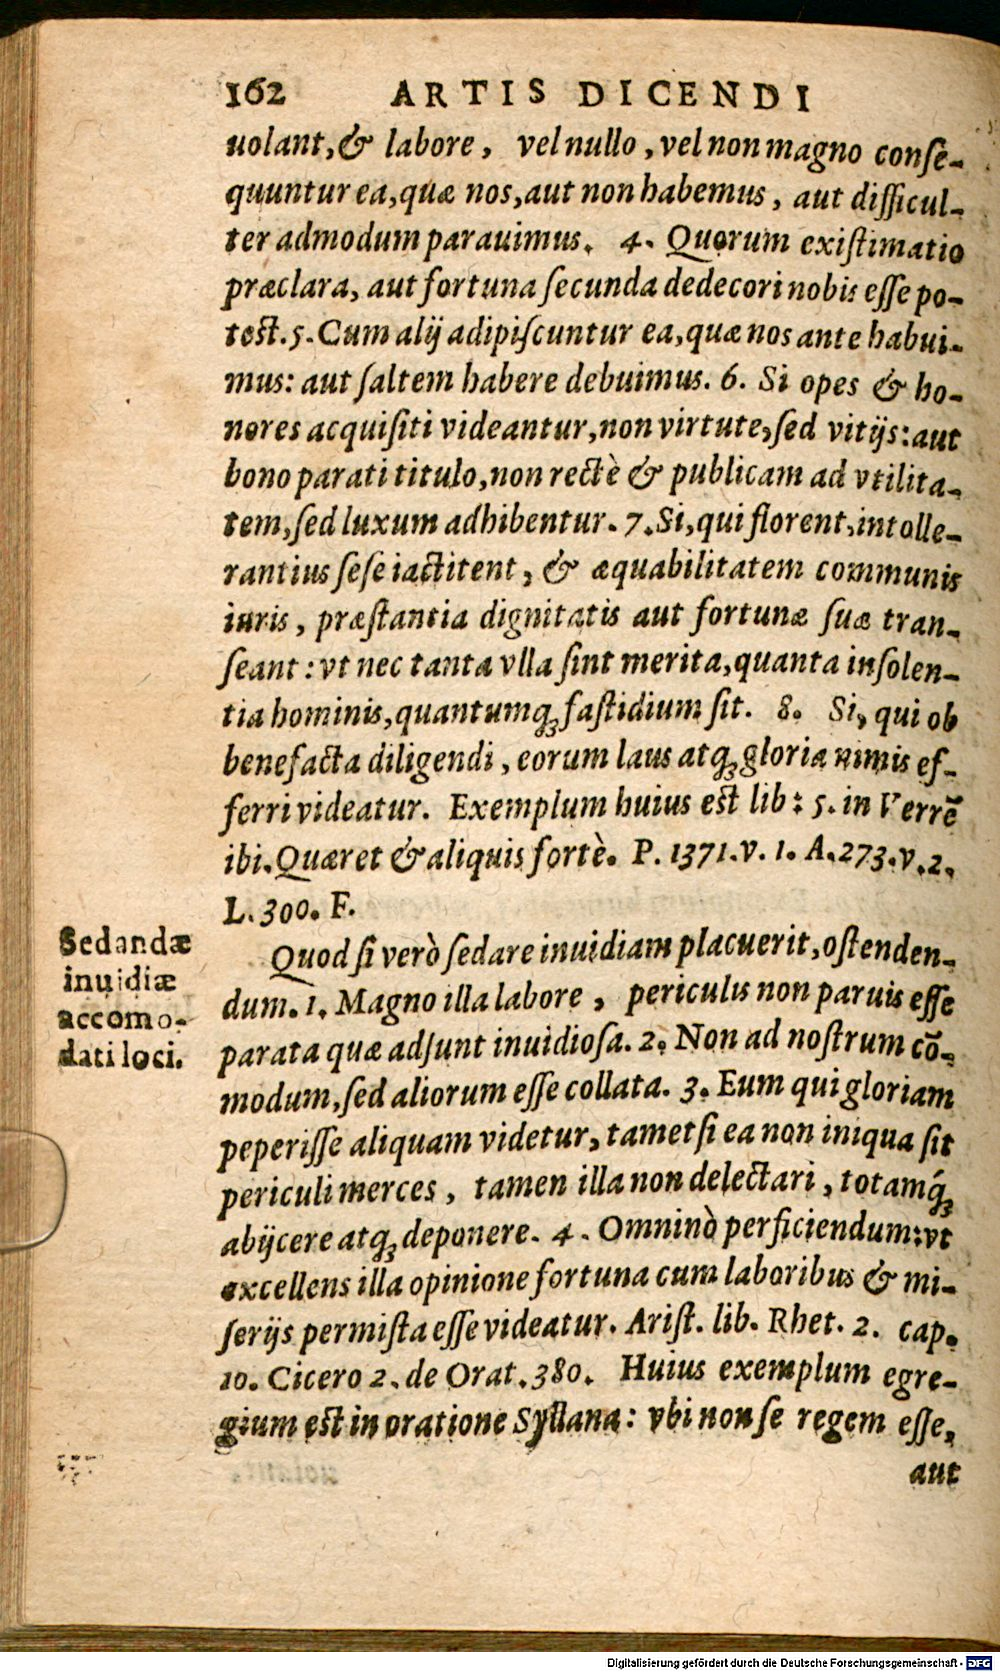 162 ARTIS DICENDI
uolant, & labore, vel nullo, vel non magno conse-
quuntur ea, quæ nos, aut non habemus, aut difficul-
ter admodum parauimus. 4. Quorum existimatio
præclara, aut fortuna secunda dedecori nobis esse po-
test. 5. Cum alij adipiscuntur ea, quæ nos ante habui-
mus: aut saltem habere debuimus. 6. Si opes & ho-
nores acquisiti videantur, non virtute, sed vitijs: aut
bono parati titulo, non rectè & publicam ad vtilita-
tem, sed luxum adhibentur. 7. Si, qui florent, intolle-
rantius sese iactitent, & æquabilitatem communis
iuris, præstantia dignitatis aut fortunæ suæ tran-
seant: vt nec tanta vlla sint merita, quanta insolen-
tia hominis, quantumq́; fastidium sit. 8. Si, qui ob
benefacta diligendi, eorum laus atq; gloria nimis ef-
ferri videatur. Exemplum huius est lib: 5. in Verrē
ibi. Quæret & aliquis fortè. P. 1371. v. 1. A. 273. v. 2.
L. 300. F.
Sedandæ
inuidiæ
accomo-
dati loci.
Quod si verò sedare inuidiam placuerit, ostenden-
dum. 1. Magno illa labore, periculis non paruis esse
parata quæ adsunt inuidiosa. 2. Non ad nostrum cō-
modum, sed aliorum esse collata. 3. Eum qui gloriam
peperisse aliquam videtur, tametsi ea non iniqua sit
periculi merces, tamen illa non delectari, totamq́;
abijcere atq; deponere. 4. Omninò perficiendum: vt
excellens illa opinione fortuna cum laboribus & mi-
serijs permista esse videatur. Arist. lib. Rhet. 2. cap.
10. Cicero 2. de Orat. 380. Huius exemplum egre-
gium est in oratione Syllana: vbi non se regem esse,
aut
Digitalisierung gefördert durch die Deutsche Forschungsgemeinschaft - DFG